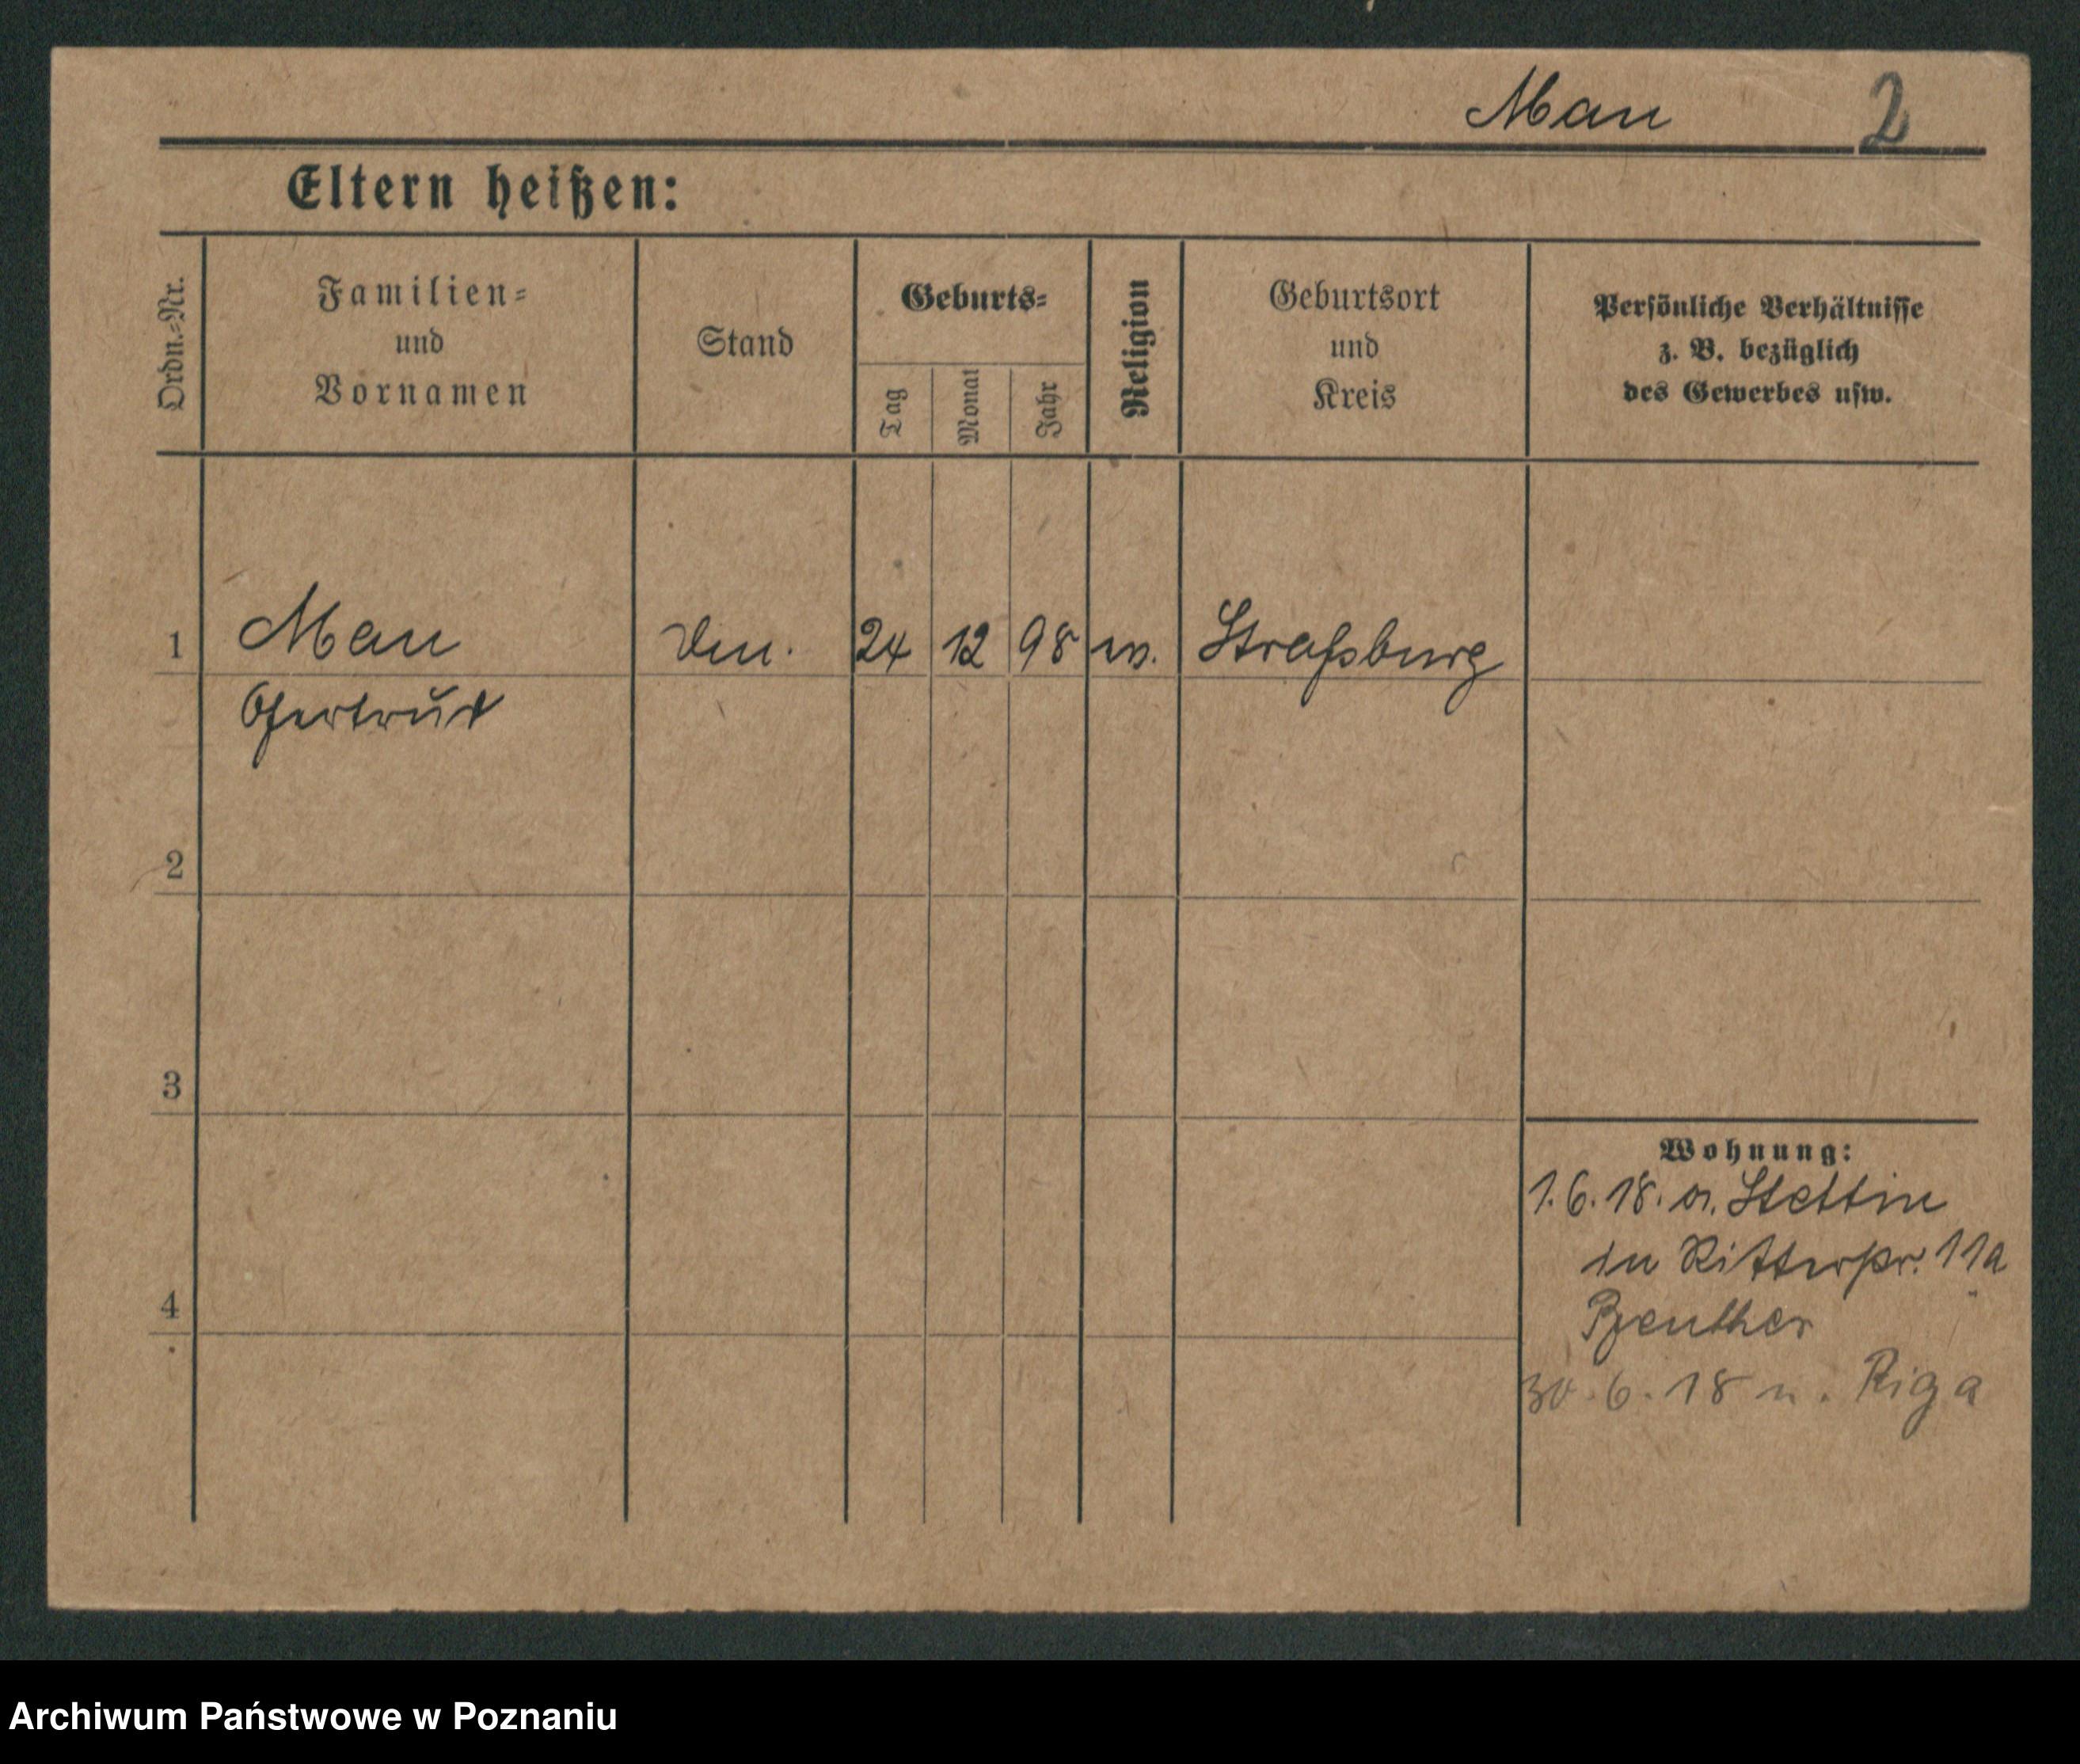 Mau 2
Eltern heißen:
Ordn.-Nr.
Familien-
und
Vornamen
Stand
Geburts-
Tag
Monat
Jahr
Religion
Geburtsort
und
Kreis
Persönliche Verhältnisse
z. B. bezüglich
des Gewerbes usw.
1 Mau 24 12 98 Straßburg
Gertrud
2
3
4
Wohnung:
1.6.18. v. Stettin
in Ritterstr. 11a
30.6.18 n. Riga
Archiwum Państwowe w Poznaniu